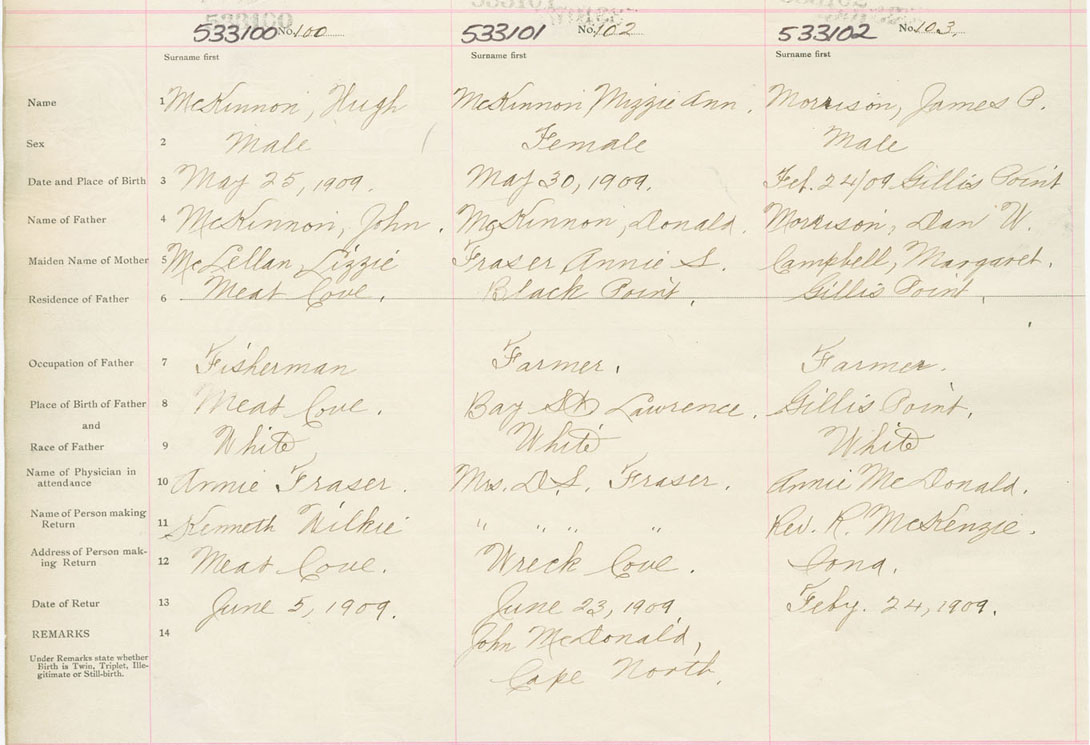 533100 No. 100 533101 No. 102 533102 No. 103.
Surname first Surname first Surname first
Name 1 McKinnon, Hugh McKinnon Mizzie Ann. Morrison, James P.
Sex 2 Male Female Male
Date and Place of Birth 3 May 25, 1909. May 30, 1909. Feb. 24/09 Gillis Point
Name of Father 4 McKinnon, John. McKinnon, Donald. Morrison, Dan W.
Maiden Name of Mother 5 McLellan, Lizzie Fraser Annie S. Campbell, Margaret.
Residence of Father 6 Meat Cove. Black Point. Gillis Point.
Occupation of Father 7 Fisherman Farmer. Farmer.
Place of Birth of Father 8 Meat Cove. Bay St Lawrence. Gillis Point.
and
Race of Father 9 White White White
Name of Physician in
attendance 10 Annie Fraser. Mrs. D. S. Fraser. Annie McDonald.
Name of Person making
Return 11 Kenneth Wilkie " " " " Rev. R. McKenzie.
Address of Person mak-
ing Return 12 Meat Cove. Wreck Cove. Iona.
Date of Retur 13 June 5, 1909. June 23, 1909 Feby. 24, 1909.
REMARKS 14 John McDonald,
Cape North.
Under Remarks state whether
Birth is Twin, Triplet, Ille-
gitimate or Still-birth.